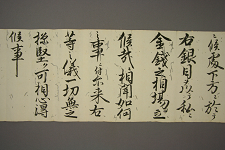 候處下方ニ於テ
右銀目
金錢之相場立
候哉相聞如何
事ニ候條来右
等之儀一切無之
様堅ク可相心得
候事